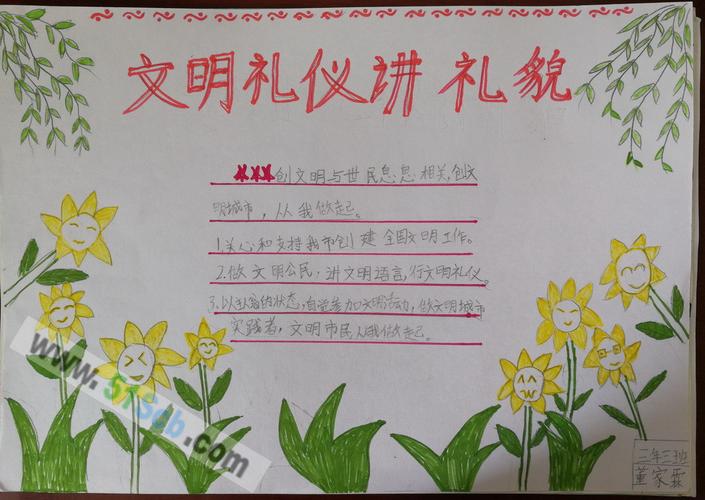 文明礼仪讲礼貌
创文明与世民息息相关,创文
明城市,从我做起。
1.关心和支持我市创建全国文明工作。
2.做文明公民,讲文明语言,行文明礼仪。
3.以 的状态,自觉参加文明活动,做文明城市
实践者,文明市民从我做起。
二年三班
董家霖
www.51Seb.com